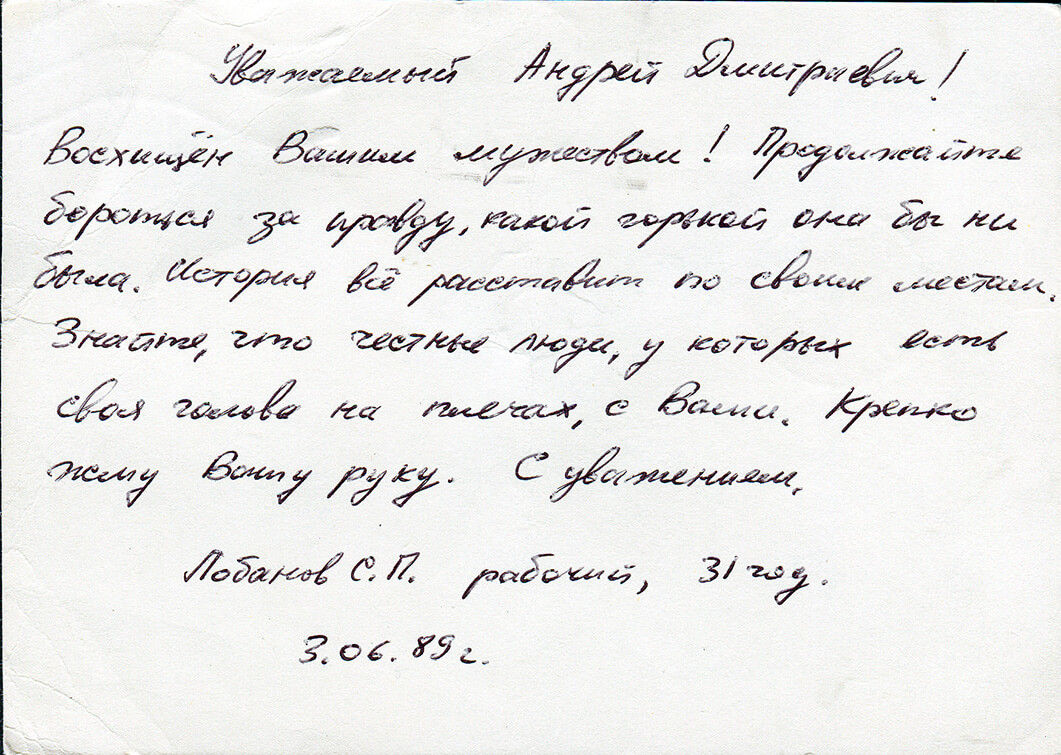 Уважаемый Андрей Дмитриевич!
Восхищён Вашим мужеством! Продолжайте
бороться за правду, какой горькой она бы ни
была. История всё расставит по своим местам.
Знайте, что честные люди, у которых есть
своя голова на плечах, с Вами. Крепко
жму Вашу руку. С уважением,
Лобанов С.П. рабочий, 31 год.
3.06.89 г.